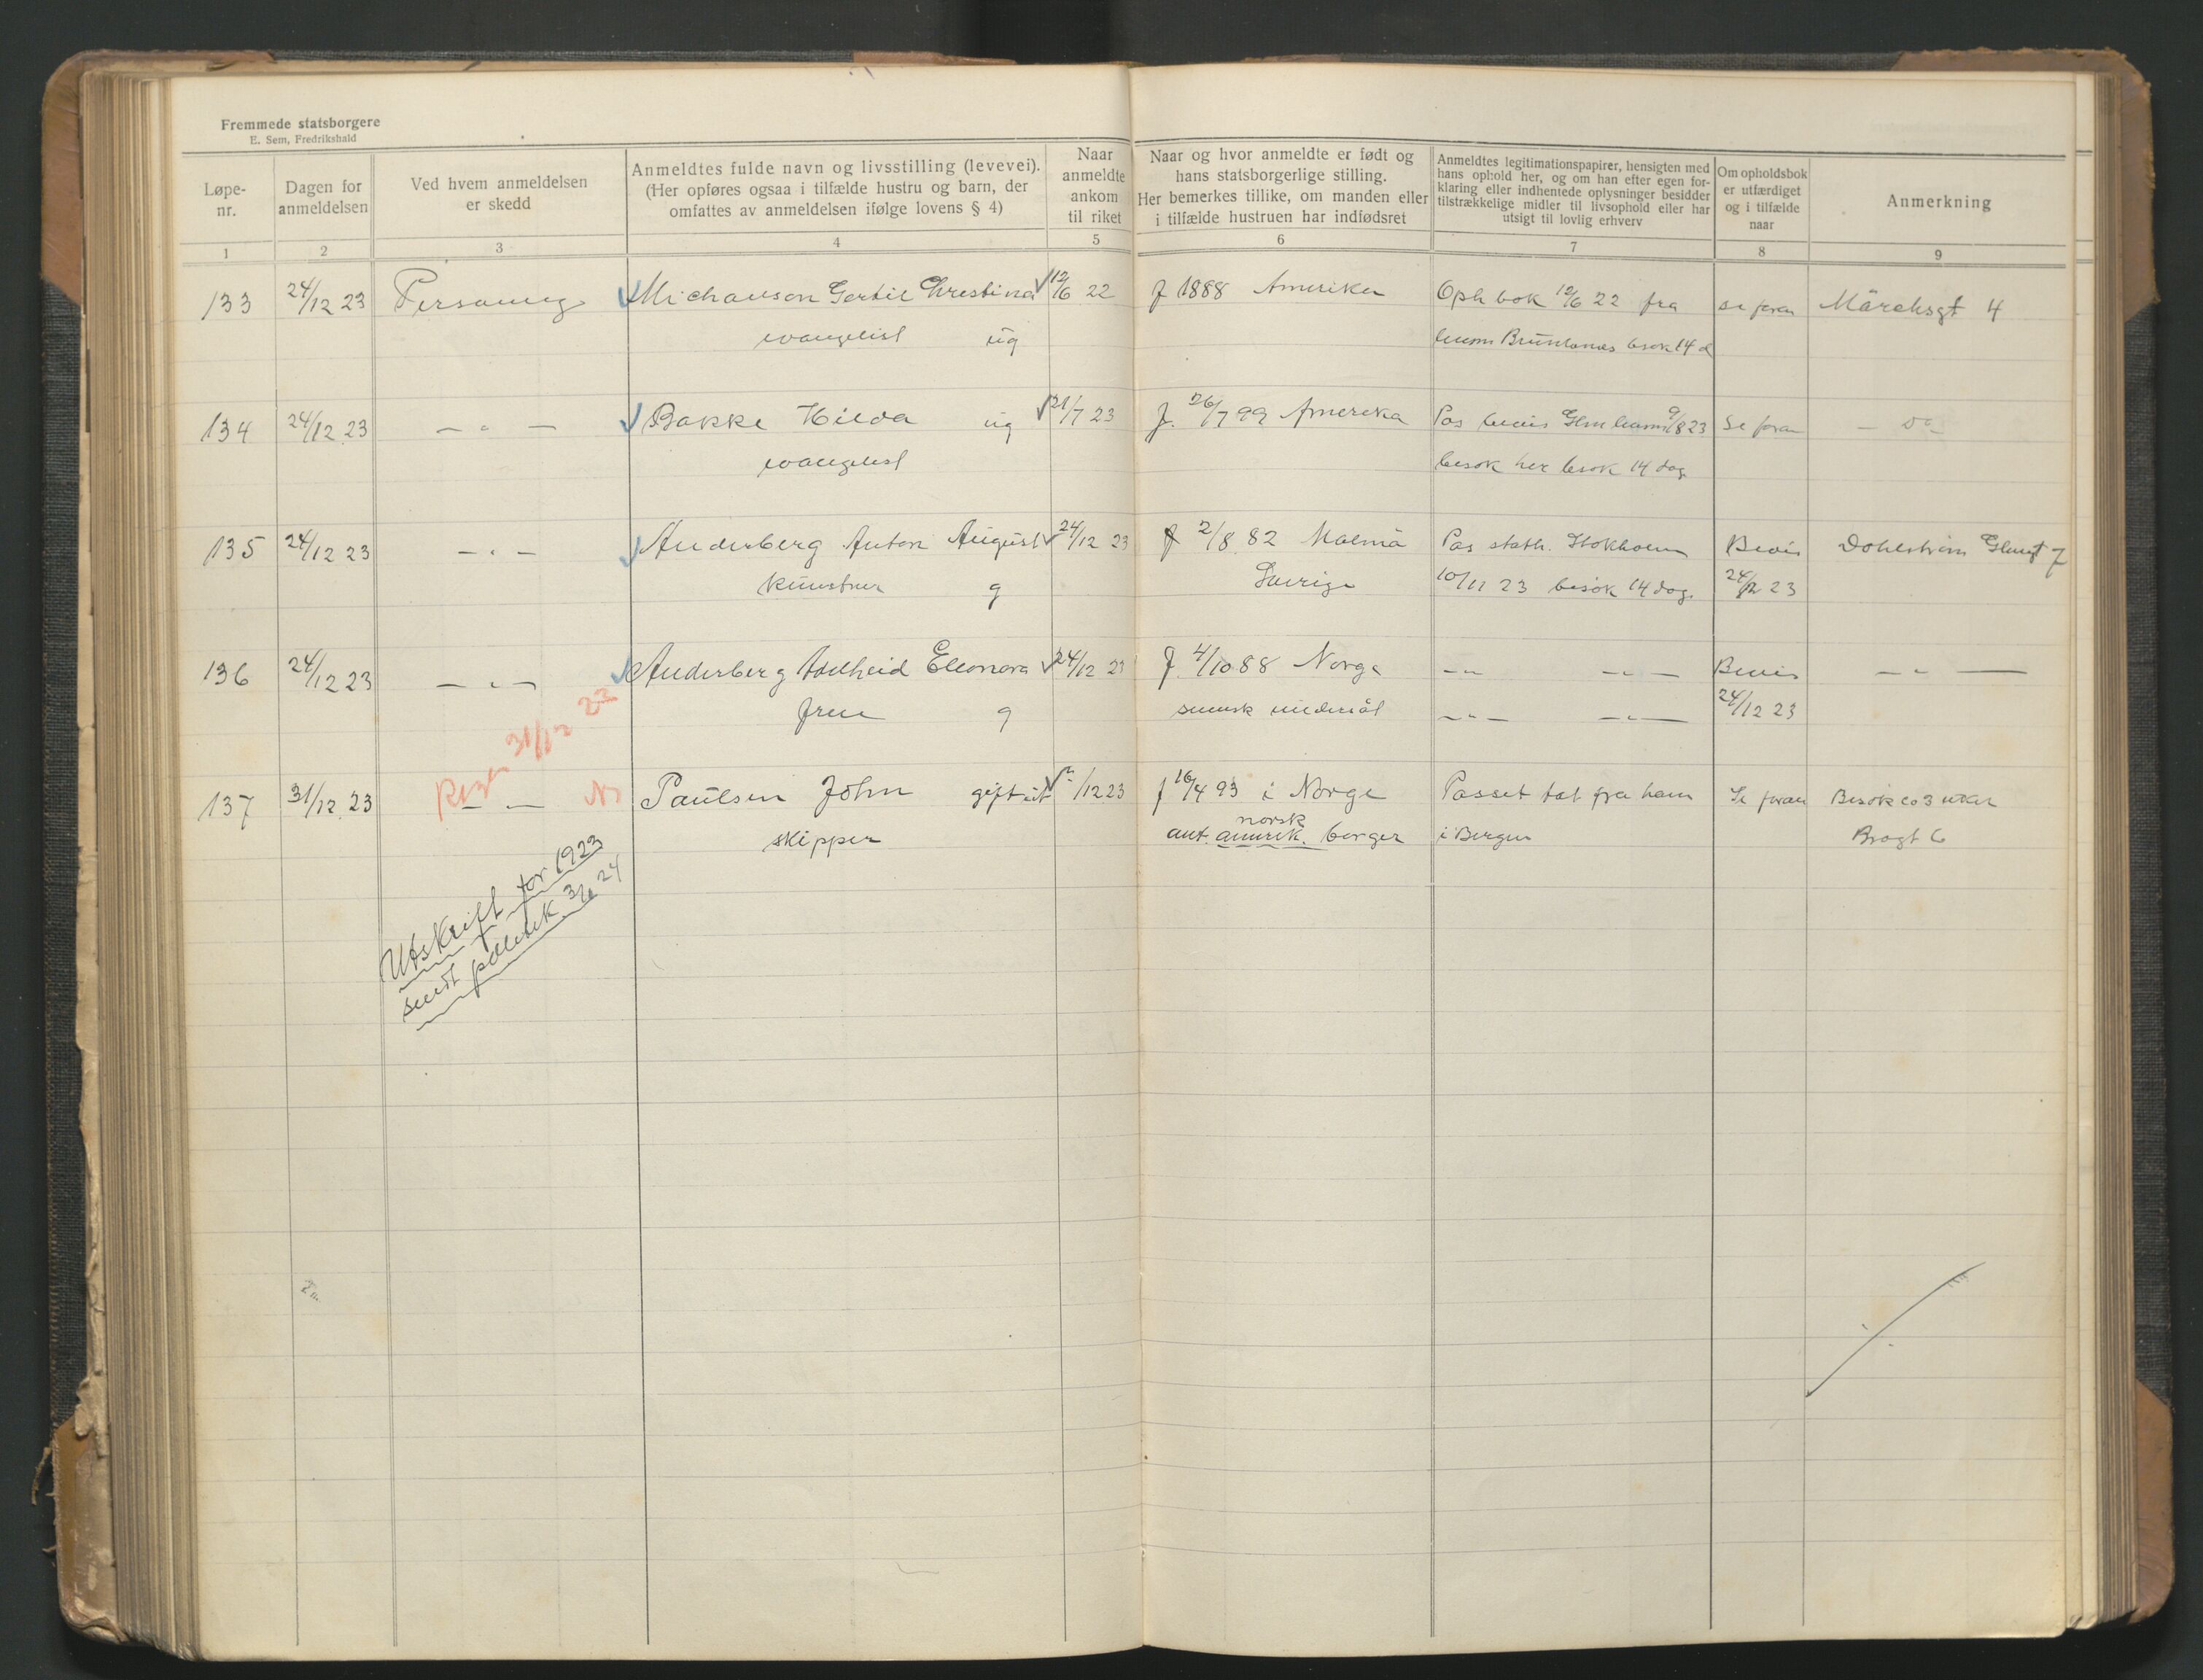 Fremmede statsborgere
E. Sem, Fredrikshald
Løpe-
nr.
Dagen for
anmeldelsen
Ved hvem anmeldelsen
er skedd
Anmeldtes fulde navn og livsstilling (levevei).
(Her opføres ogsaa i tilfælde hustru og barn, der
omfattes av anmeldelsen ifølge lovens § 4)
Naar
anmeldte
ankom
til riket
Naar og hvor anmeldte er født og
hans statsborgerlige stilling.
Her bemerkes tillike, om manden eller
i tilfælde hustruen har indfødsret
Anmeldtes legitimationspapirer, hensigten med
hans ophold her, og om han efter egen for-
klaring eller indhentede oplysninger besidder
tilstrækkelige midler til livsophold eller har
utsigt til lovlig erhverv
Om opholdsbok
er utfærdiget
og i tilfælde
naar
Anmerkning
1 2 3 4 5 6 7 8 9
133 24/12 23 Michaelson Gertie Christina 12/6 22 f 1888 Amerika Oph bok 12/6 22 fra se foran 4
evangelist ug Brunlanes besøk 14 d
134 24/12 23 — " — Bakke Hilda ug 21/7 23 f. 26/7 99 Amerika Pas bevis 9/8 23 Se foran — do —
evangelist besøk her besøk 14 dag
135 24/12 23 — " — Anderberg Anton August 24/12 23 f 2/8 82 Malmö Pas stath. Stokholm Bevis 7
Kunstner g Sverige 10/11 23 besøk 14 dag. 24/12 23
136 24/12 23 — " — Anderberg Adelheid Eleonora 24/12 23 f. 4/10 88 Norge — " — — " — Bevis — " —
frue g svensk undersåt — " — — " — 24/12 23
Reist 31/12 23
137 31/12 23 — " — No Paulsen John gift /12 23 f 16/4 93 i Norge Passet tat fra ham Se foran Besøk ca 3 uker
skipper ant. amerik. norsk borger i Bergen Bragt 6
Utskrift for 1923
sendt 24